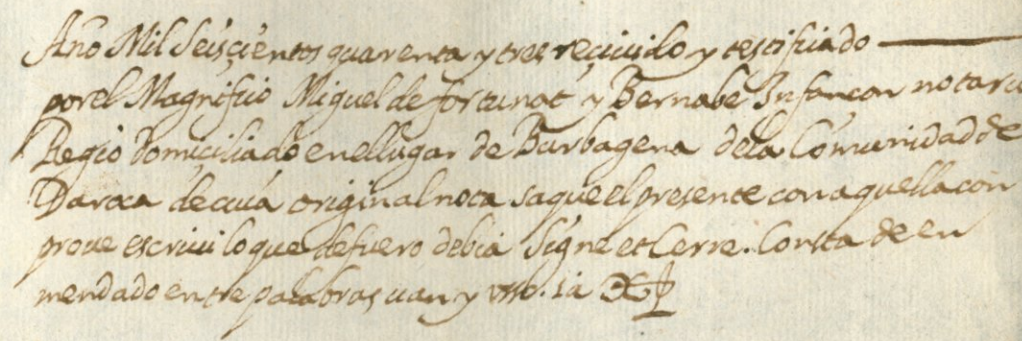 Año Mil Seisçientos quarenta y tres reçiuido y testificado
por el Magnifico Miguel de fortunat y Bernabe Infançon notario
Regio domiçiliado en el lugar de Burbagena de la Comunidad de
Daroca de cuia original nota saque el presente con aquella con
proue escriui lo que de fuero debia Signe et Cerre. Consta de en
mendado entre palabras uan y